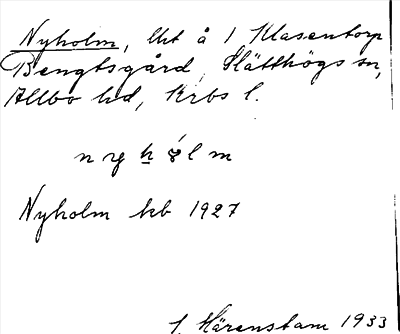 Nyholm, lht å 1 Klasentorp
Bengtsgård, Slätthögs sn,
Allbo hd, Krbs l.
n y h o l m
Nyholm kb 1927
Härenstam 1933